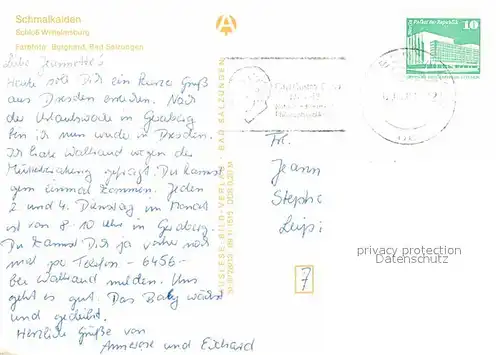 Schmalkalden
Schloß Wilhelmsburg
Farbfoto: Burgrund, Bad Salzungen
Liebe Jeannette's
Heute soll Dich ein kurzer Gruß
aus Dresden erreichen. Nach
der Urlaubswoche in Geraberg
bin ich nun wieder in Dresden.
Ich habe Waltraud wegen der
Mütterberatung gefragt. Du kannst
gern einmal kommen. Jeden
2. und 4. Dienstag im Monat
ist von 8-10 Uhr in Geraberg.
Du kannst Dich ja vorher noch
mal per Telefon - 6456 -
bei Waltraud melden. Uns
geht es gut. Das Baby wächst
und gedeiht.
Herzliche Grüße von
Annerose und Eckhard
AUSLESE-BILD-VERLAG · BAD SALZUNGEN
DDR 0,20 M
Palast der Republik
10
Fr.
Jeann
Stepha
Leipzi
7
privacy protection
Datenschutz